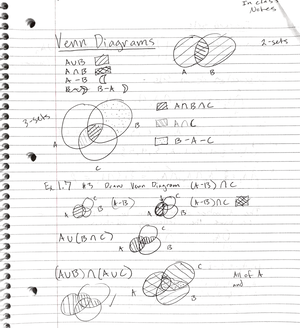 In class
Notes
Venn Diagrams
2-sets
A∪B
A∩B
A-B
B-A
A B
3-sets
A∩B∩C
A∩C
B-A-C
A B
C
Ex 1.7 #3 Draw Venn Diagram (A-B)∩C
(A-B) (A-B)∩C
A B C
A∪(B∩C)
A B C
(A∪B)∩(A∪C)
A B C
All of A
and